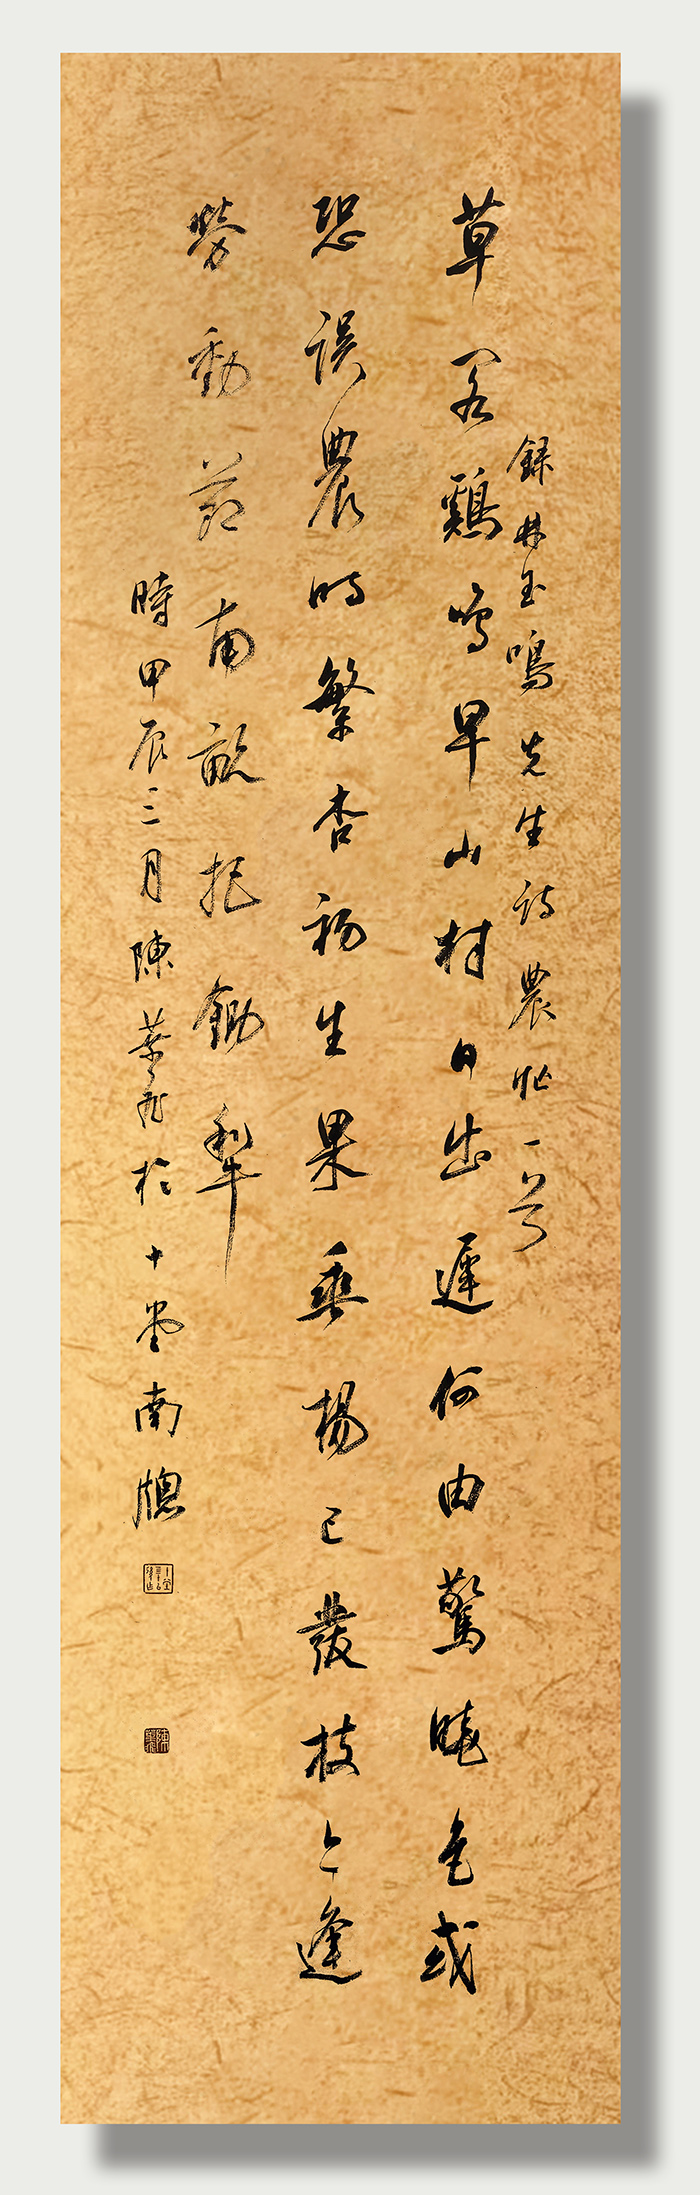 錄林玉鳴先生詩農忙一首
草閣鷄鳴早山村日出遲何由驚曉色或
恐誤農時繁杏初生果垂楊已發枝今逢
勞動節南畝把鋤犁
時甲辰三月陳於十堂南牕